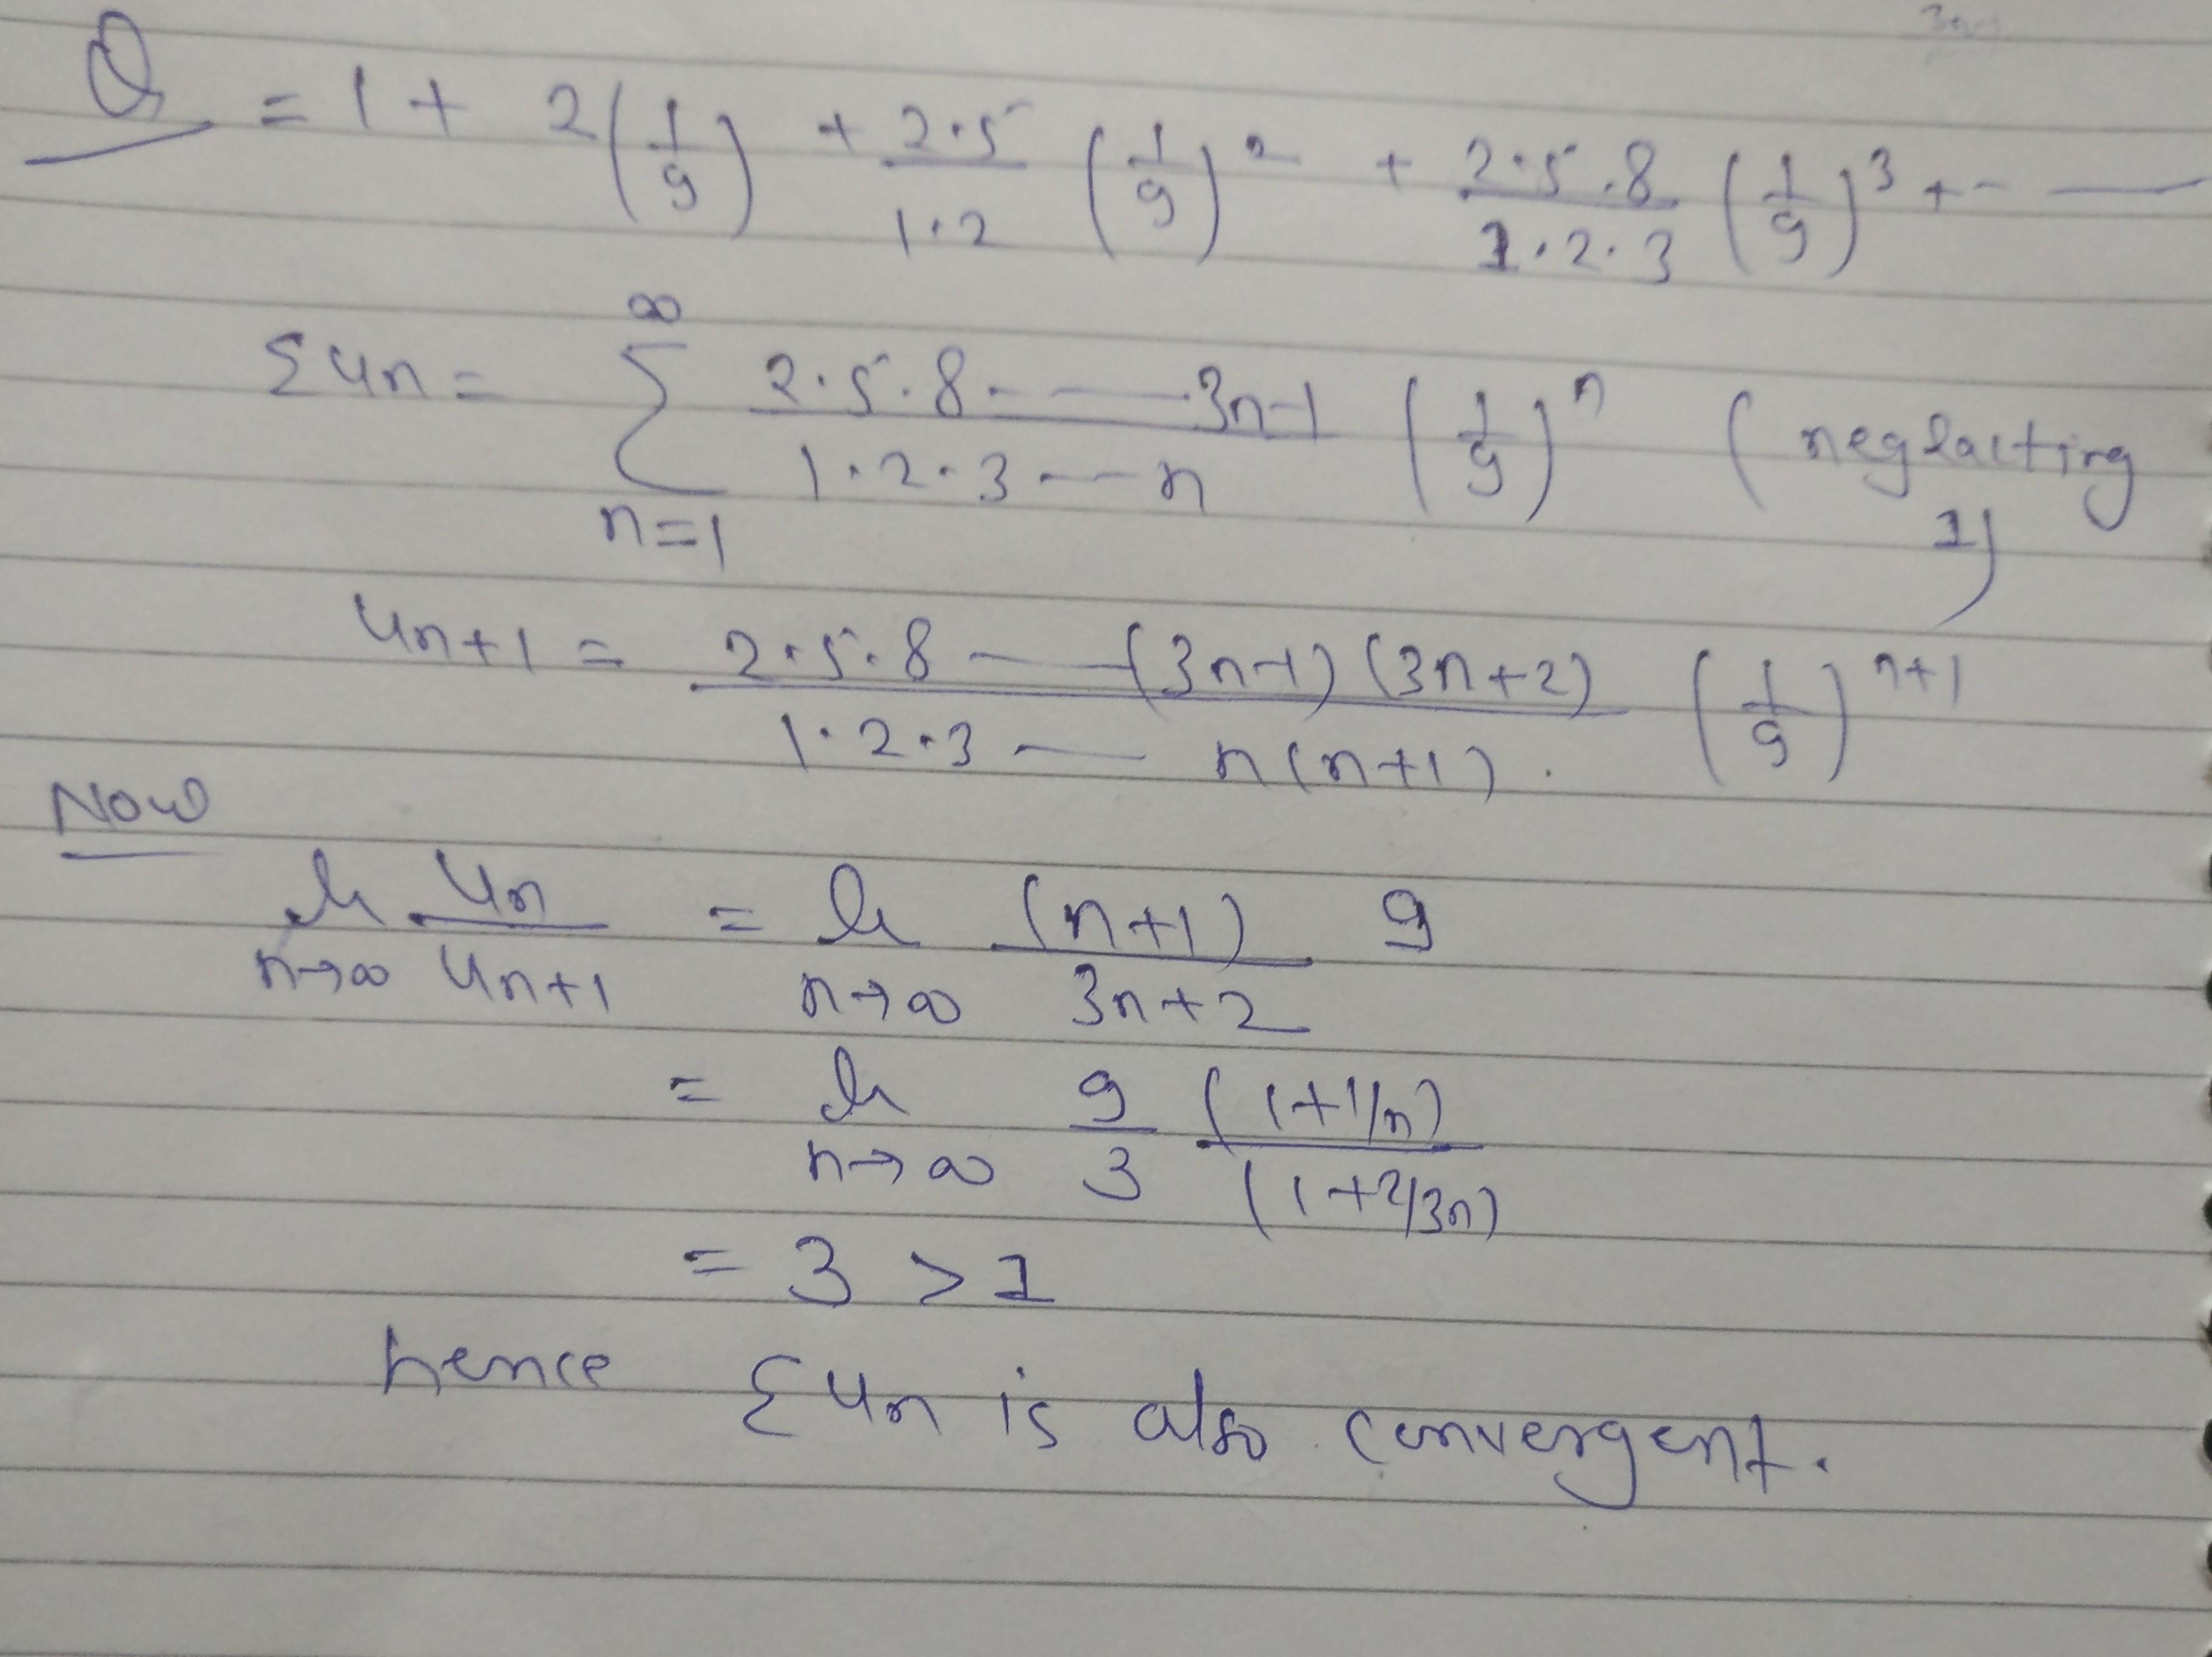 Q = 1 + 2(1/9) + 2·5/1·2 (1/9)^2 + 2·5·8/1·2·3 (1/9)^3 + - —
Σun = ∞Σn=1 2·5·8·—·3n-1/1·2·3—n (1/9)^n (neglacting
1)
un+1 = 2·5·8—(3n-1)(3n+2)/1·2·3—n(n+1). (1/9)^n+1
Now
lt n→∞ un/un+1 = lt n→∞ (n+1)/3n+2 9
= lt n→∞ 9/3 (1+1/n)/(1+2/3n)
= 3 > 1
hence Σun is also convergent.